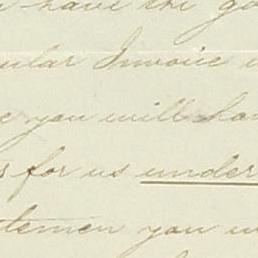 have the go
ular Invoice
e you will ha
s for us under
tlemen you w